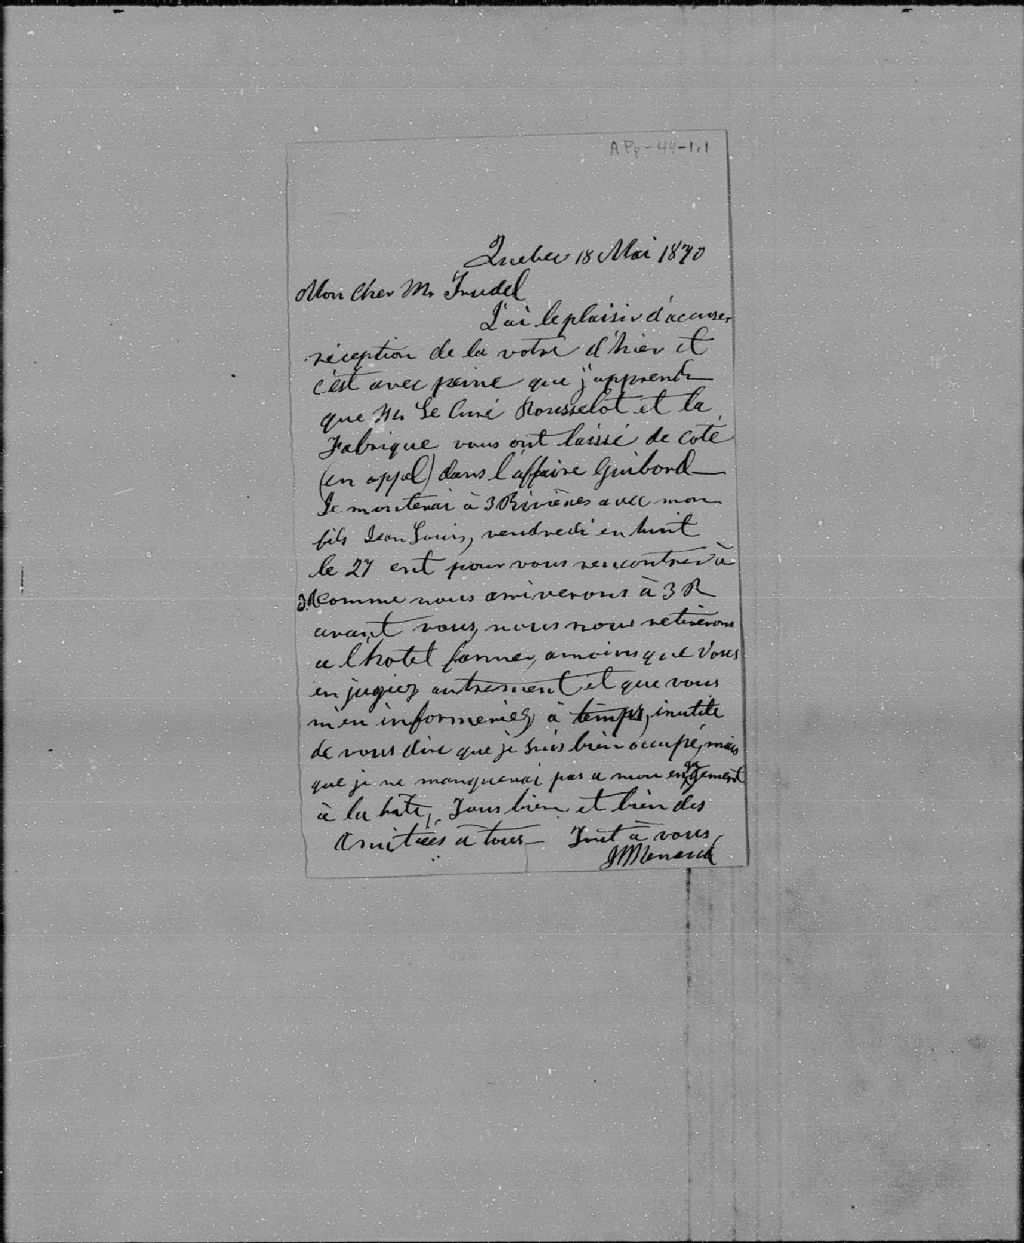 APp-44-1.1
Quebec 18 Mai 1870
Mon Cher Mr Trudel
J'ai le plaisir d'accuser
réception de la votre d'hier et
c'est avec peine que j'apprends
que Mr Le Curé Rousselot et la
Fabrique vous ont laissé de coté
(en appel) dans l'affaire Guibord
Je monterai à 3 Rivières avec mon
fils Jean Louis, vendredi en huit
le 27 crt pour vous rencontrer à
3.R comme nous arriverons à 3 R
avant vous, nous nous retirerons
a l'hotel farmer, amoins que vous
en jugiez autrement et que vous
m'en informeriez à temps, inutile
de vous dire que je suis bien occupé, mais
que je ne manquerai pas a mon engagement
à la hate, Tous bien et bien des
Amitiées a tous — Tout à vous,
Menard